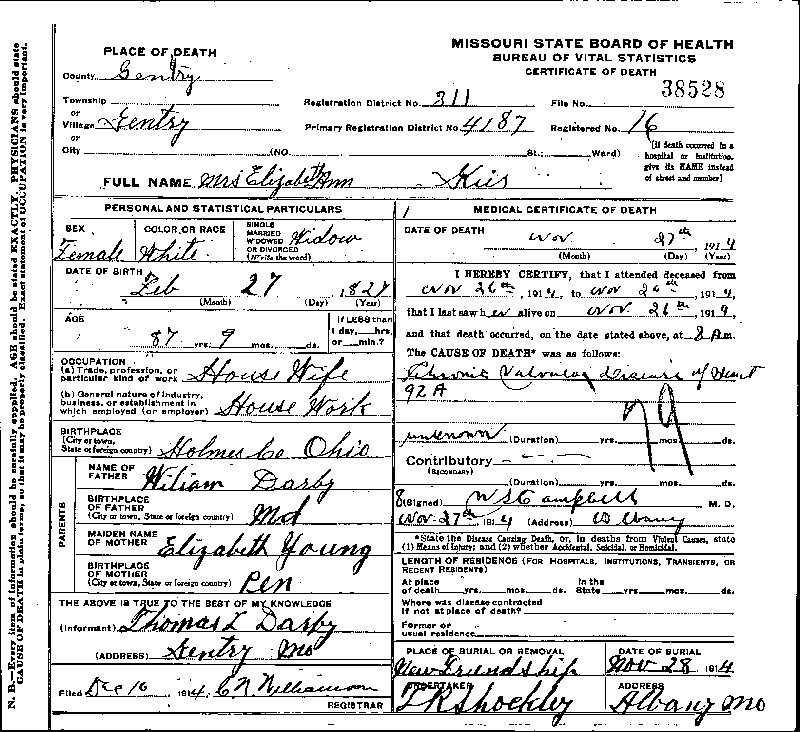 MISSOURI STATE BOARD OF HEALTH
BUREAU OF VITAL STATISTICS
CERTIFICATE OF DEATH
38528
PLACE OF DEATH
County Gentry
Township
or
Village Gentry
or
City (NO. St.; Ward)
Registration District No. 311 File No.
Primary Registration District No. 4187 Registered No. 16
(If death occurred in a
hospital or institution,
give its NAME instead
of street and number)
FULL NAME Mrs Elizabeth Ann
PERSONAL AND STATISTICAL PARTICULARS
SEX Female
COLOR OR RACE White
SINGLE
MARRIED
WIDOWED
OR DIVORCED
(Write the word) Widow
DATE OF BIRTH
Feb 27 1827
(Month) (Day) (Year)
AGE
87 yrs. 9 mos. ds.
If LESS than
1 day, hrs.
or min.?
OCCUPATION
(a) Trade, profession, or
particular kind of work House Wife
(b) General nature of industry,
business, or establishment in
which employed (or employer) House Work
BIRTHPLACE
(City or town,
State or foreign country) Holmes Co. Ohio
PARENTS
NAME OF
FATHER Wiliam Darby
BIRTHPLACE
OF FATHER
(City or town, State or foreign country) Md
MAIDEN NAME
OF MOTHER Elizabeth Young
BIRTHPLACE
OF MOTHER
(City or town, State or foreign country) Pen
THE ABOVE IS TRUE TO THE BEST OF MY KNOWLEDGE
(Informant) Thomas L Darby
(ADDRESS) Gentry Mo
Filed Dec 16 1914 C N Williamson
REGISTRAR
MEDICAL CERTIFICATE OF DEATH
DATE OF DEATH Nov 27th, 1914
(Month) (Day) (Year)
I HEREBY CERTIFY, that I attended deceased from
Nov 26th, 1914, to Nov 26th, 1914,
that I last saw her alive on Nov 26th, 1914,
and that death occurred, on the date stated above, at 8 A.m.
The CAUSE OF DEATH* was as follows:
Chronic Valvular disease of Heart
92A
79
unknown (Duration) yrs. mos. ds.
Contributory
(SECONDARY)
(Duration) yrs. mos. ds.
(Signed) W S Campbell M. D.
Nov 27th 1914 (Address) Albany
*State the Disease Causing Death, or, in deaths from Violent Causes, state
(1) Means of Injury; and (2) whether Accidental, Suicidal, or Homicidal.
LENGTH OF RESIDENCE (FOR HOSPITALS, INSTITUTIONS, TRANSIENTS, OR
RECENT RESIDENTS)
At place
of death yrs. mos. ds.
In the
State yrs. mos. ds.
Where was disease contracted
if not at place of death?
Former or
usual residence
PLACE OF BURIAL OR REMOVAL
New Friendship
DATE OF BURIAL
Nov 28 1914
UNDERTAKER
L R Shockley
ADDRESS
Albany Mo
N. B.—Every item of information should be carefully supplied. AGE should be stated EXACTLY. PHYSICIANS should state
CAUSE OF DEATH in plain terms, so that it may be properly classified. Exact statement of OCCUPATION is very important.